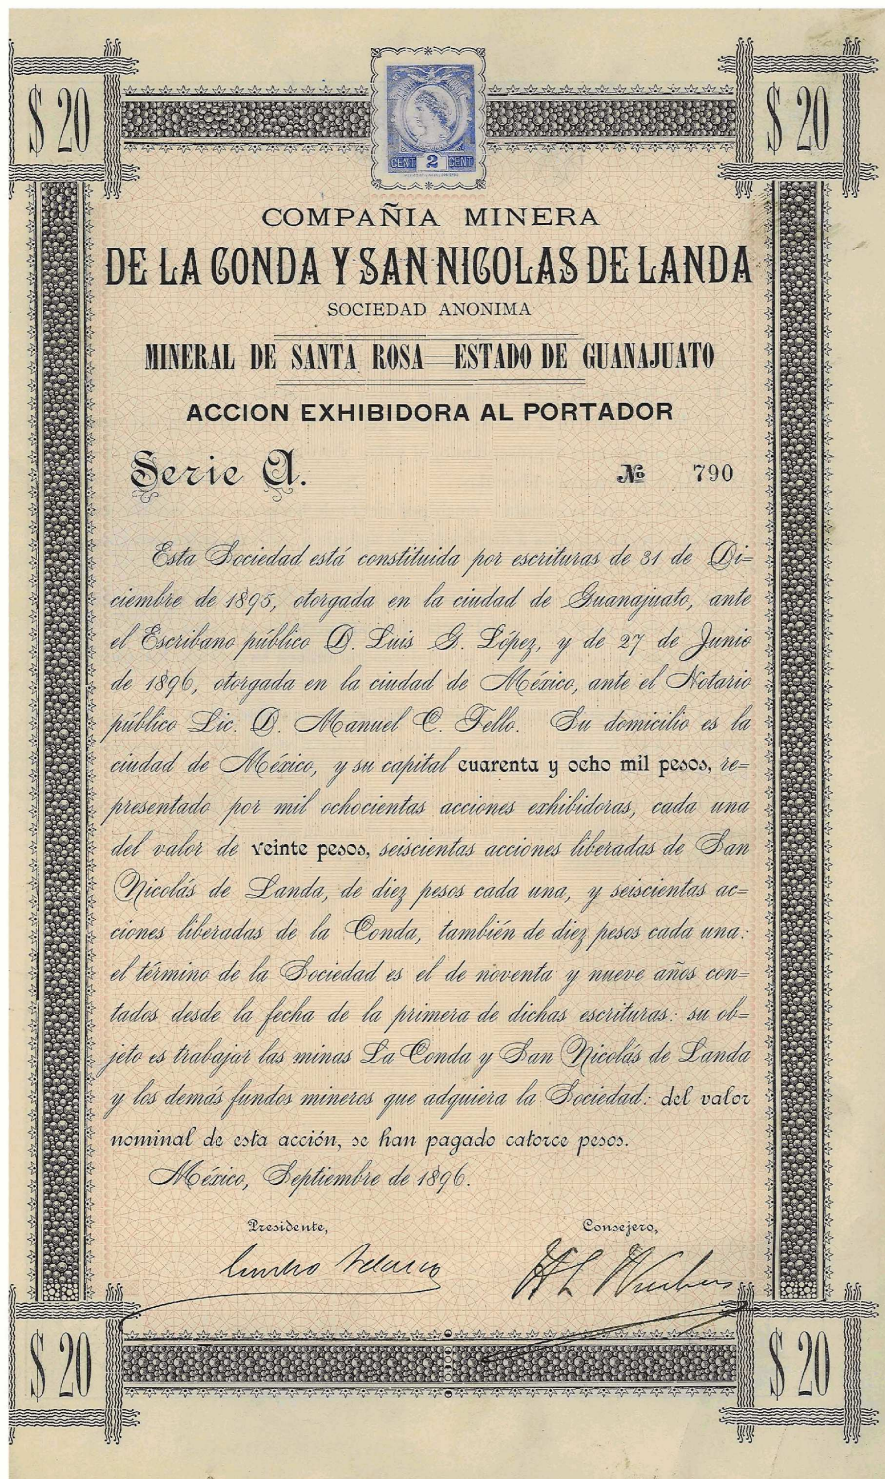 $ 20
$ 20
CENT 2 CENT
COMPAÑIA MINERA
DE LA CONDA Y SAN NICOLAS DE LANDA
SOCIEDAD ANONIMA
MINERAL DE SANTA ROSA ESTADO DE GUANAJUATO
ACCION EXHIBIDORA AL PORTADOR
Serie A. No 790
Esta Sociedad está constituida por escrituras de 31 de Di=
ciembre de 1895, otorgada en la ciudad de Guanajuato, ante
el Escribano público D. Luis G. López, y de 27 de Junio
de 1896, otorgada en la ciudad de México, ante el Notario
público Lic. D. Manuel C. Tello. Su domicilio es la
ciudad de México, y su capital cuarenta y ocho mil pesos, re=
presentado por mil ochocientas acciones exhibidoras, cada una
del valor de veinte pesos, seiscientas acciones liberadas de San
Nicolás de Landa, de diez pesos cada una, y seiscientas ac=
ciones liberadas de la Conda, también de diez pesos cada una:
el término de la Sociedad es el de noventa y nueve años con=
tados desde la fecha de la primera de dichas escrituras: su ob=
jeto es trabajar las minas La Conda y San Nicolás de Landa
y los demás fundos mineros que adquiera la Sociedad: del valor
nominal de esta acción, se han pagado catorce pesos.
México, Septiembre de 1896.
Presidente, Consejero,
$ 20
$ 20